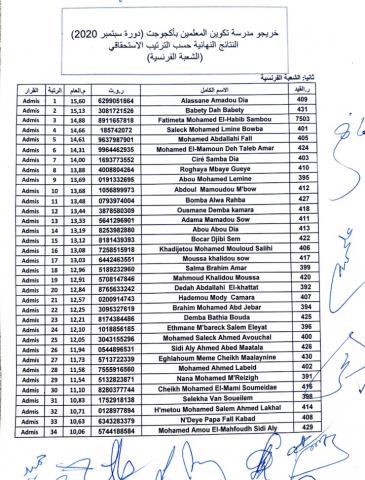 خريجو مدرسة تكوين المعلمين بأكجوجت (دورة سبتمبر 2020)
النتائج النهائية حسب الترتيب الاستحقاقي
(الشعبة الفرنسية)
ثانيا: الشعبة الفرنسية
القرار الرتبة م.العام ر.و.ت الاسم الكامل ر.القيد
Admis 1 15,60 6299051864 Alassane Amadou Dia 409
Admis 2 15,13 3081721526 Babety Dah Babety 431
Admis 3 14,88 8911657818 Fatimeta Mohamed El-Habib Sambou 7503
Admis 4 14,66 185742072 Saleck Mohamed Lmine Bowba 401
Admis 5 14,61 9637987901 Mohamed Abdallahi Fall 405
Admis 6 14,31 9964462935 Mohamed El-Mamoun Deh Taleb Amar 424
Admis 7 14,00 1693773552 Ciré Samba Dia 403
Admis 8 13,88 4008804264 Roghaya Mbaye Gueye 410
Admis 9 13,69 0191332695 Abou Mohamed Lemine 395
Admis 10 13,68 1056899973 Abdoul Mamoudou M'bow 412
Admis 11 13,48 0793974004 Bomba Alwa Rahba 427
Admis 12 13,44 3878580309 Ousmane Demba kamara 418
Admis 13 13,33 5641296901 Adama Mamadou Sow 411
Admis 14 13,19 8253982880 Abou Abou Dia 413
Admis 15 13,12 8181439393 Bocar Djibi Sem 422
Admis 16 13,08 7258515918 Khadijetou Mohamed Mouloud Salihi 406
Admis 17 13,03 6442463551 Moussa khalidou sow 417
Admis 18 12,96 5189232960 Salma Brahim Amar 399
Admis 19 12,91 5708147846 Mahmoud Khalidou Moussa 420
Admis 20 12,84 8765633242 Dedah Abdallahi El-khattat 392
Admis 21 12,57 0200914743 Hademou Mody Camara 407
Admis 22 12,25 3095327619 Brahim Mohamed Abd Jebar 394
Admis 23 12,21 8174384486 Demba Bathia Bouda 425
Admis 24 12,10 1018856185 Ethmane M'bareck Salem Eleyat 396
Admis 25 12,05 3043155296 Mohamed Saleck Ahmed Avouchal 400
Admis 26 11,94 0544896531 Sidi Aly Ahmed Abed Maatala 426
Admis 27 11,73 5713722339 Eghlahoum Meme Cheikh Maalaynine 430
Admis 28 11,58 7555916560 Mohamed Ahmed Labeid 402
Admis 29 11,54 5132823871 Nana Mohamed M'Reizigh 391
Admis 30 11,10 8280377744 Cheikh Mohamed El-Mami Soumeidae 416
Admis 31 10,83 1752918138 Selekha Van Soueilem 398
Admis 32 10,71 0128977894 H'metou Mohamed Salem Ahmed Lakhal 414
Admis 33 10,63 6343283379 N'Deye Papa Fall Kabad 408
Admis 34 10,06 5744188584 Mohamed Amou El-Mahfoudh Sidi Aly 429